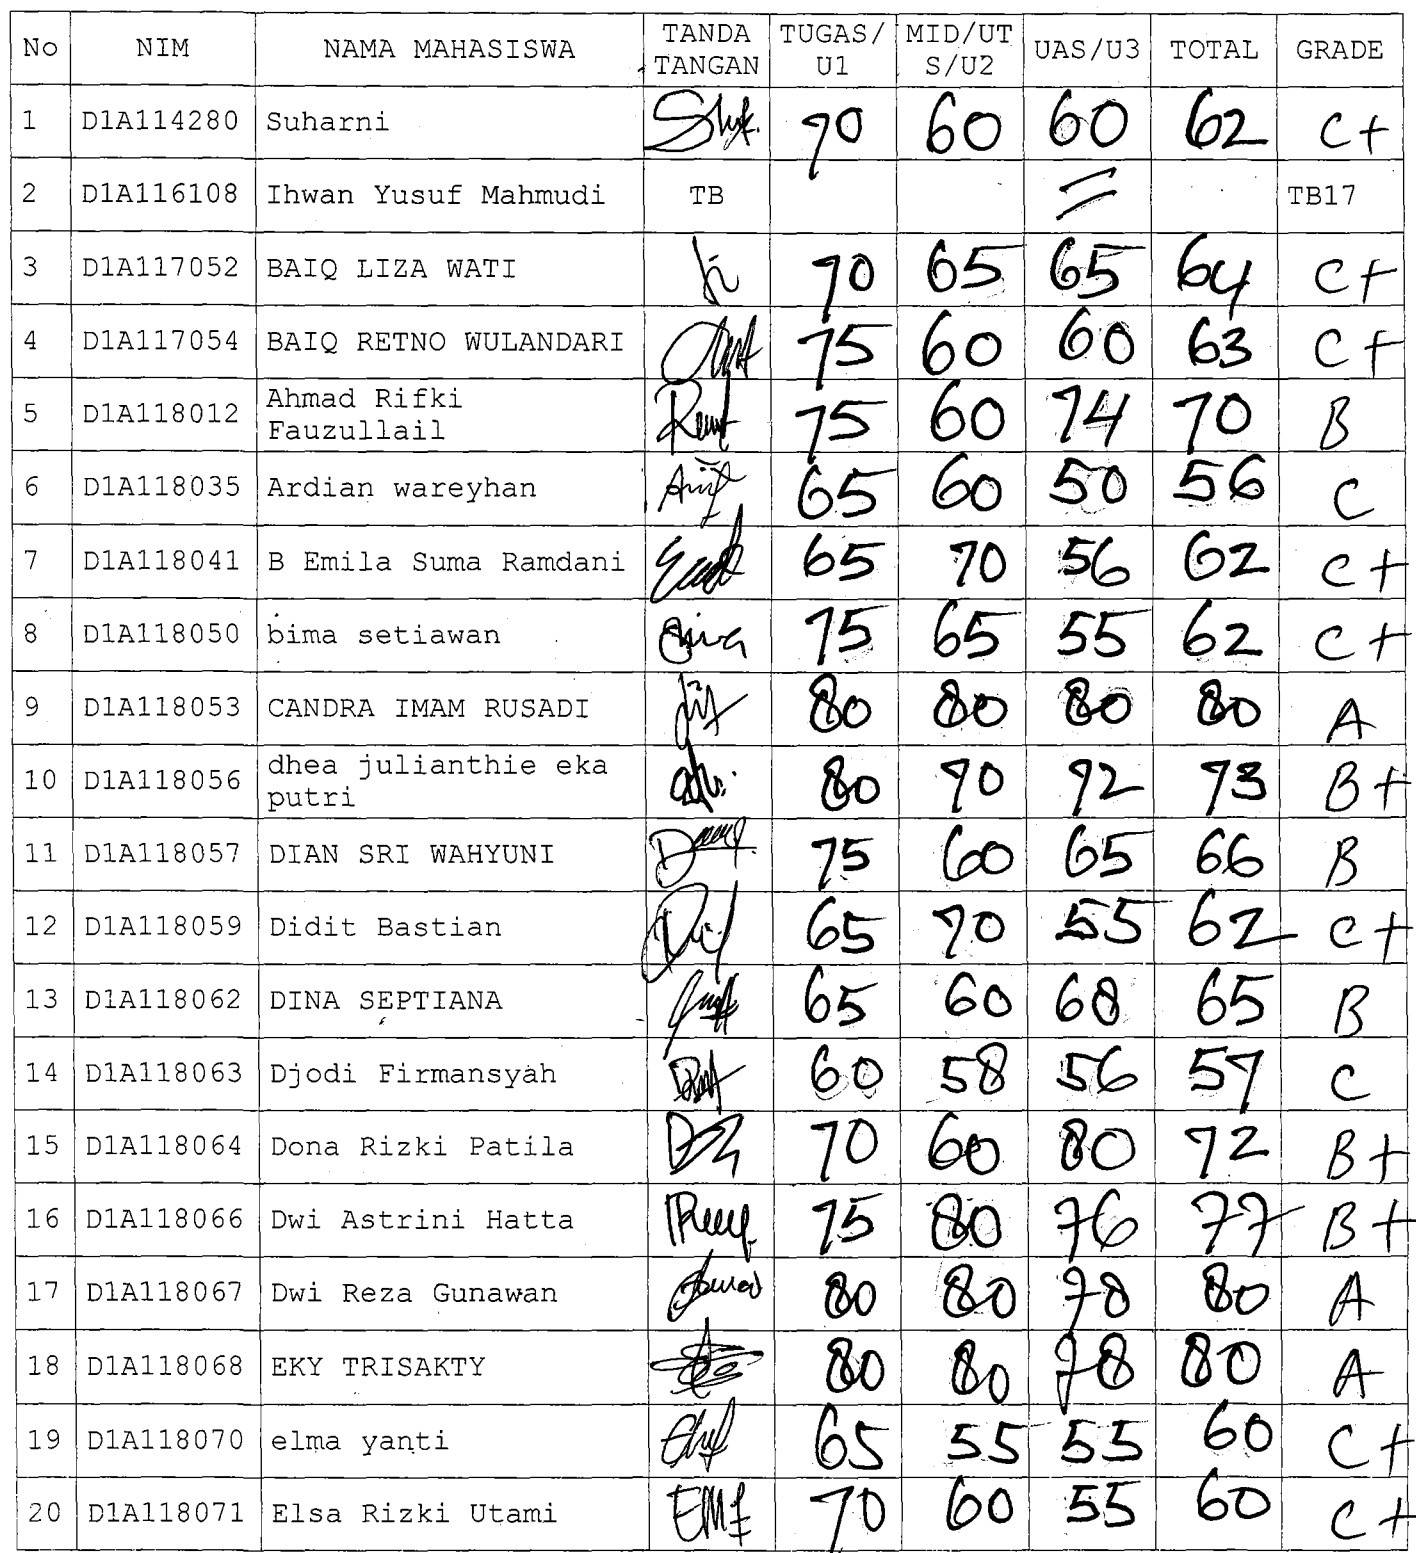 No NIM NAMA MAHASISWA TANDA TANGAN TUGAS/U1 MID/UTS/U2 UAS/U3 TOTAL GRADE
1 D1A114280 Suharni 70 60 60 62 C+
2 D1A116108 Ihwan Yusuf Mahmudi TB = TB17
3 D1A117052 BAIQ LIZA WATI 70 65 65 64 C+
4 D1A117054 BAIQ RETNO WULANDARI 75 60 60 63 C+
5 D1A118012 Ahmad Rifki Fauzullail 75 60 74 70 B
6 D1A118035 Ardian wareyhan 65 60 50 56 C
7 D1A118041 B Emila Suma Ramdani 65 70 56 62 C+
8 D1A118050 bima setiawan 75 65 55 62 C+
9 D1A118053 CANDRA IMAM RUSADI 80 80 80 80 A
10 D1A118056 dhea julianthie eka putri 80 70 72 73 B+
11 D1A118057 DIAN SRI WAHYUNI 75 60 65 66 B
12 D1A118059 Didit Bastian 65 70 55 62 C+
13 D1A118062 DINA SEPTIANA 65 60 68 65 B
14 D1A118063 Djodi Firmansyah 60 58 56 57 C
15 D1A118064 Dona Rizki Patila 70 60 80 72 B+
16 D1A118066 Dwi Astrini Hatta 75 80 76 77 B+
17 D1A118067 Dwi Reza Gunawan 80 80 78 80 A
18 D1A118068 EKY TRISAKTY 80 80 78 80 A
19 D1A118070 elma yanti 65 55 55 60 C+
20 D1A118071 Elsa Rizki Utami 70 60 55 60 C+